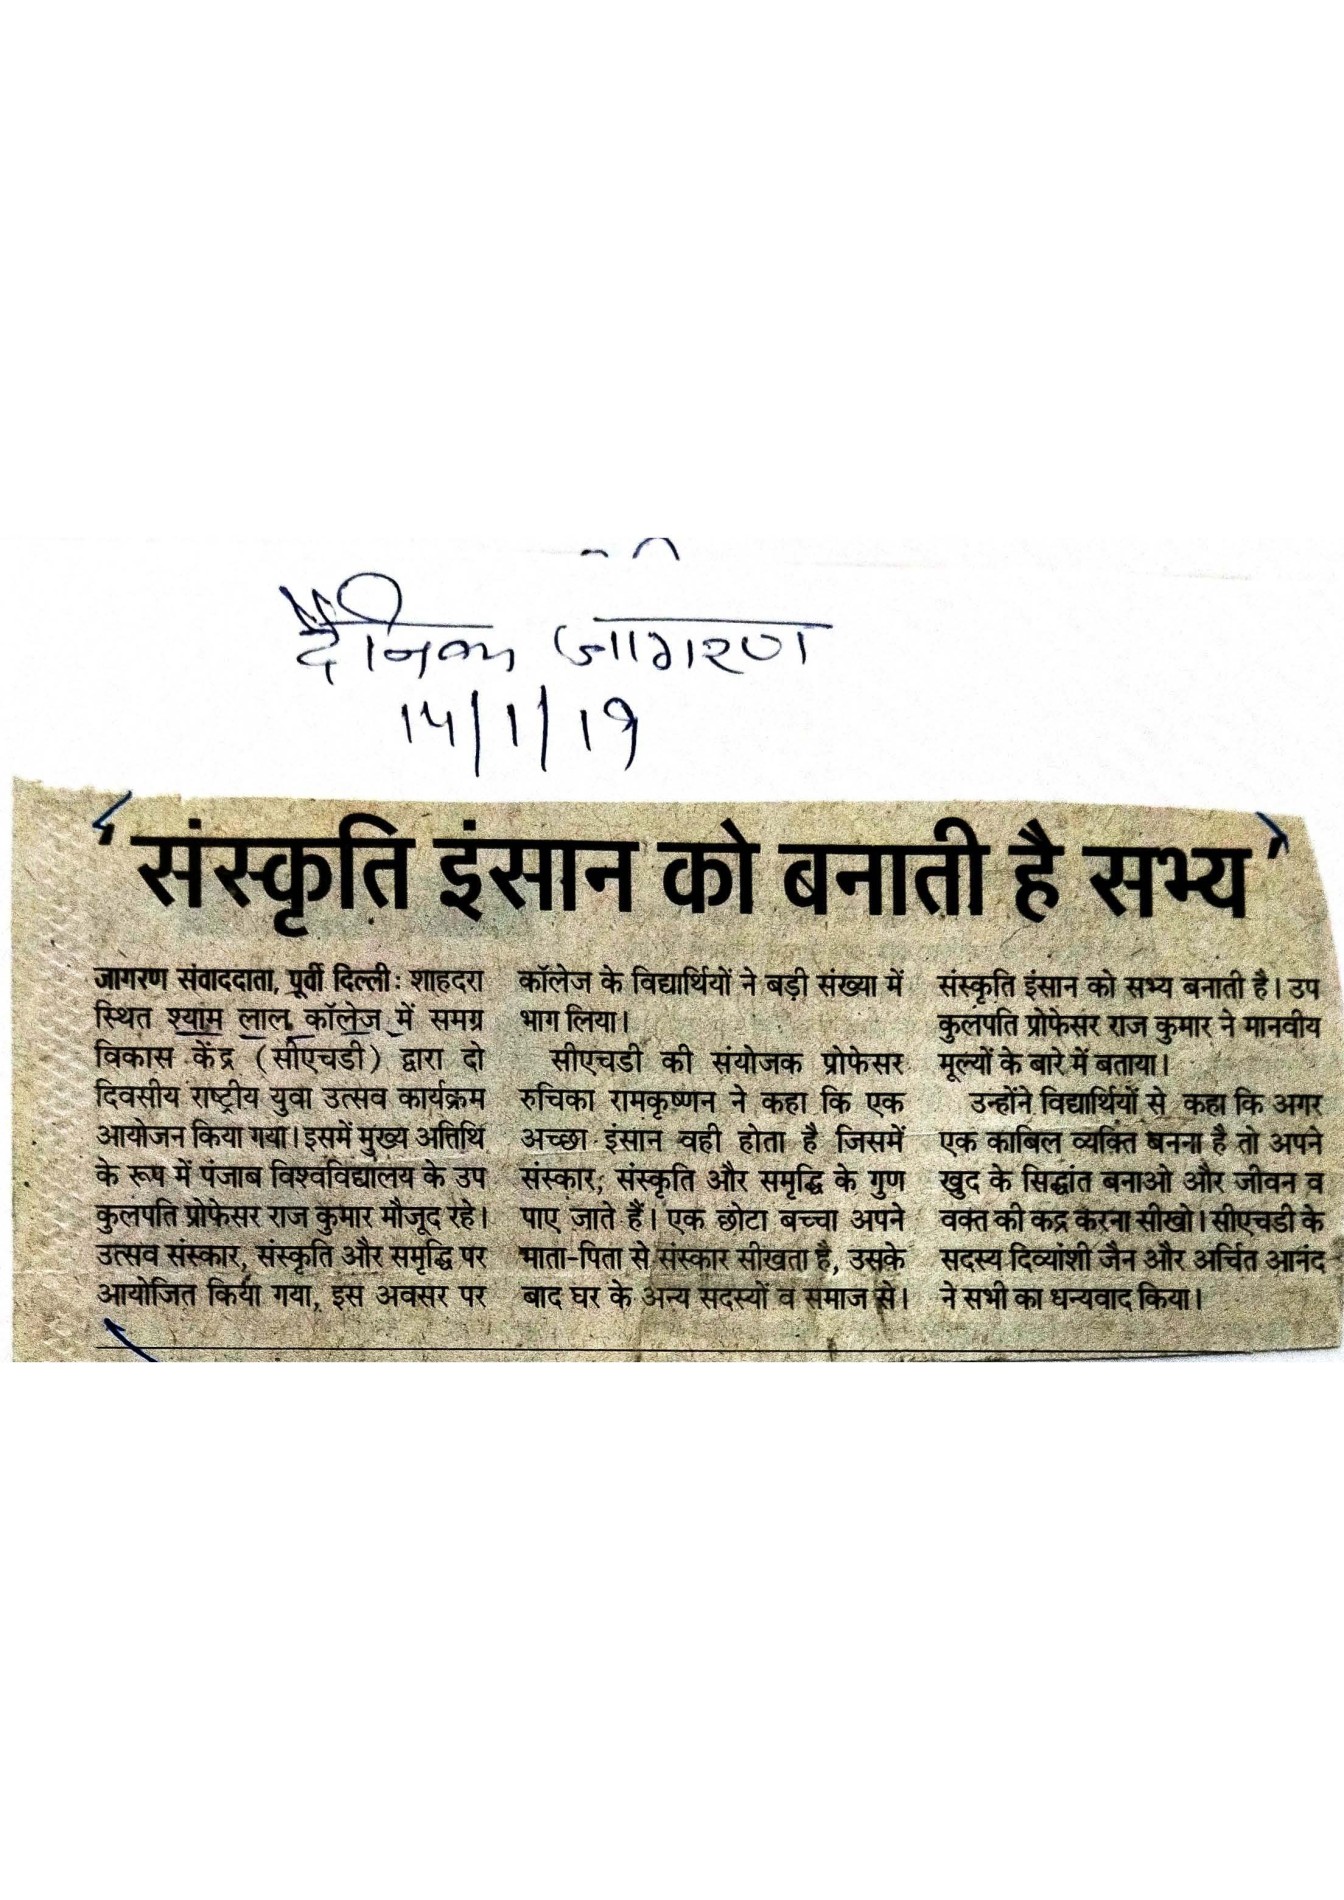 दैनिक जागरण
१५/१/१९
‘संस्कृति इंसान को बनाती है सभ्य’
जागरण संवाददाता, पूर्वी दिल्ली: शाहदरा
स्थित श्याम लाल कॉलेज में समग्र
विकास केंद्र (सीएचडी) द्वारा दो
दिवसीय राष्ट्रीय युवा उत्सव कार्यक्रम
आयोजन किया गया। इसमें मुख्य अतिथि
के रूप में पंजाब विश्वविद्यालय के उप
कुलपति प्रोफेसर राज कुमार मौजूद रहे।
उत्सव संस्कार, संस्कृति और समृद्धि पर
आयोजित किया गया, इस अवसर पर
कॉलेज के विद्यार्थियों ने बड़ी संख्या में
भाग लिया।
सीएचडी की संयोजक प्रोफेसर
रुचिका रामकृष्णन ने कहा कि एक
अच्छा इंसान वही होता है जिसमें
संस्कार, संस्कृति और समृद्धि के गुण
पाए जाते हैं। एक छोटा बच्चा अपने
माता-पिता से संस्कार सीखता है, उसके
बाद घर के अन्य सदस्यों व समाज से।
संस्कृति इंसान को सभ्य बनाती है। उप
कुलपति प्रोफेसर राज कुमार ने मानवीय
मूल्यों के बारे में बताया।
उन्होंने विद्यार्थियों से कहा कि अगर
एक काबिल व्यक्ति बनना है तो अपने
खुद के सिद्धांत बनाओ और जीवन व
वक्त की कद्र करना सीखो। सीएचडी के
सदस्य दिव्यांशी जैन और अर्चित आनंद
ने सभी का धन्यवाद किया।